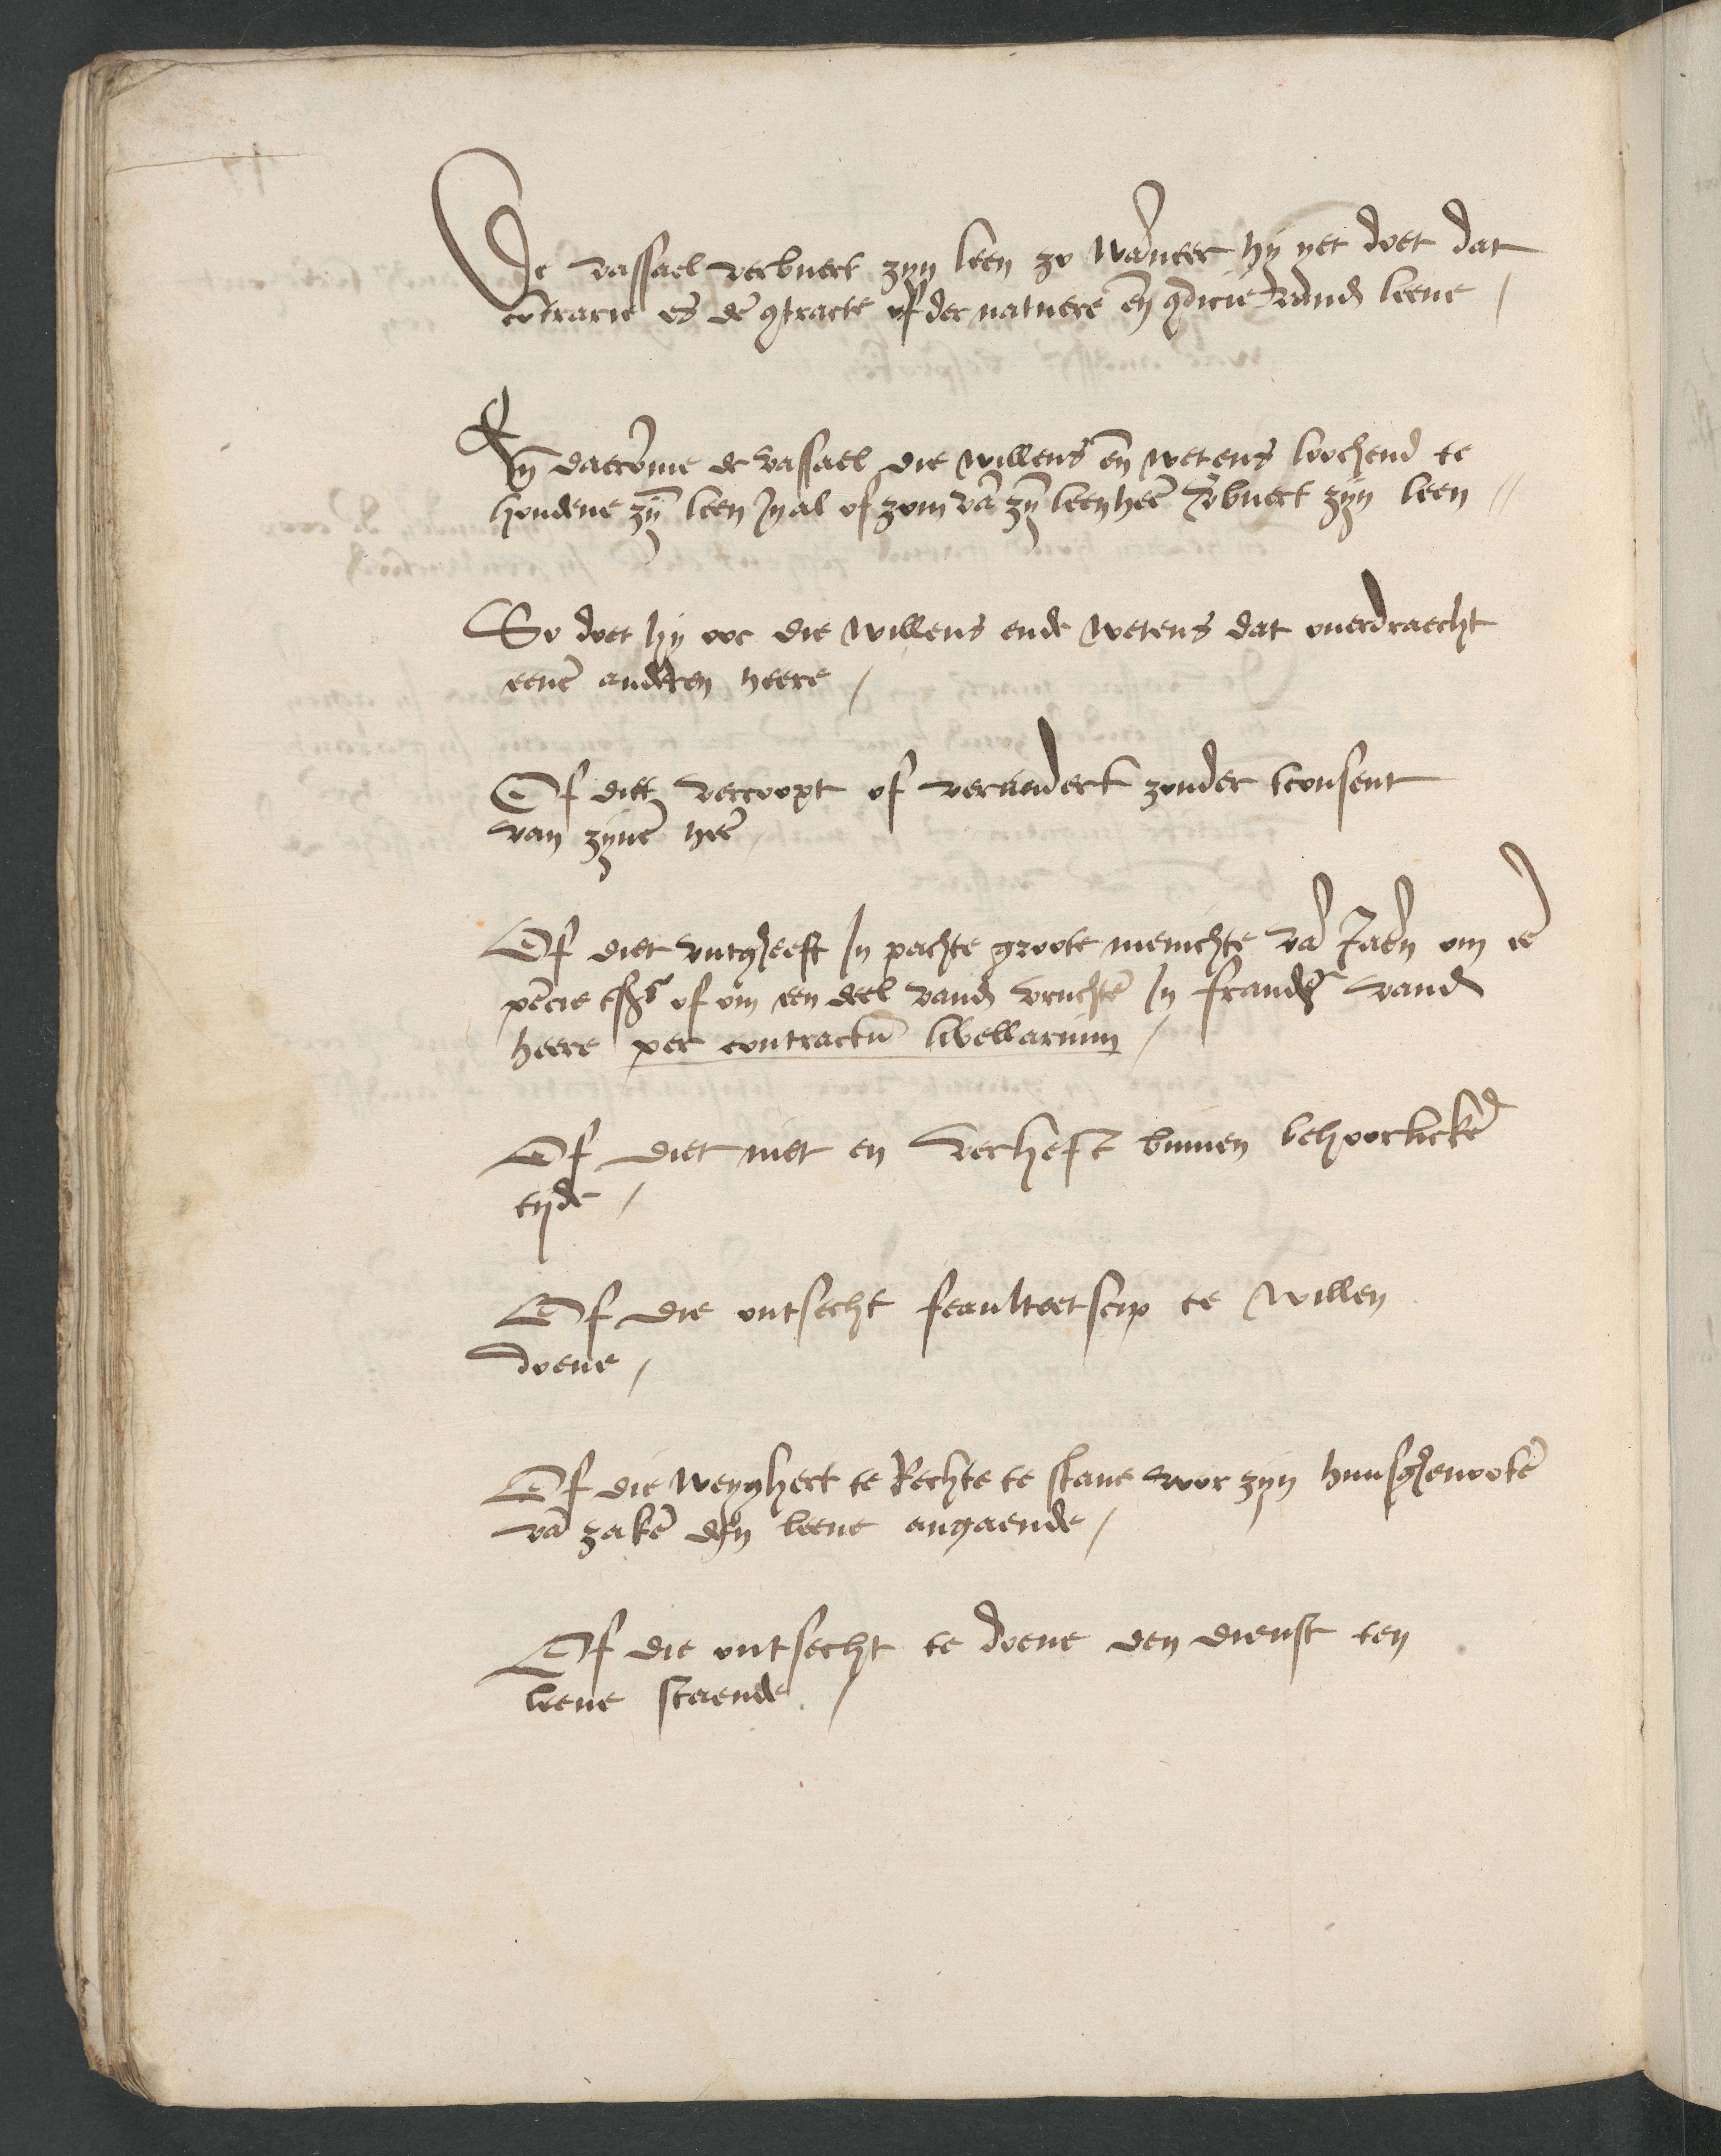 De vassael verbuert zyn leen zo wāneer hy yet doet dat
cōtrarie es dē ꝯtracte of der natuere eñ ꝯdicie vand leene /
Eñ daerōme de vassael die willens eñ wetens loochend te
houdene zȳ leen In al of zom vā zȳ leenheē v̄buert zyn leen //
So doet hy ooc die willens ende wetens dat overdraecht
eenē anderen heere /
Of diet vercoopt of verandert zonder tconsent
van zynē heē /
Of diet uutgheeft In pachte groote menichte vā Jaeñ om eē
pēcie of om een deel vand vruchtē In fraudē vand
heere per contractū libellarium /
Of diet niet en verheft binnen behoorlickē
tyde /
Of die ontsecht feaulteetscip te willen
doene /
Of die weyghert te Rechte te stane voor zyn huusghenootē
vā zakē den leene angaende /
Of die ontsecht te doene den dienst ten
leene staende /